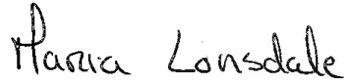 Maria Lonsdale